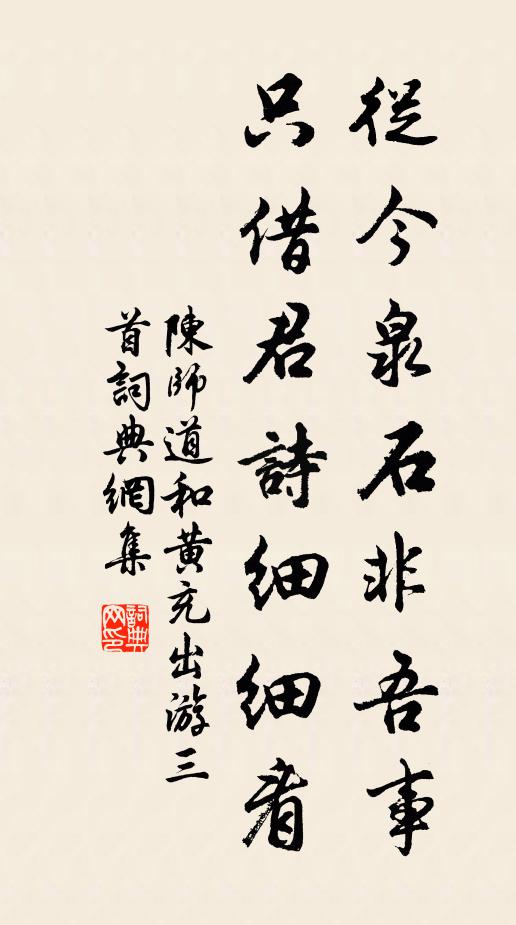 從今泉石非吾事
只借君詩細細看
陳師道和黃充出游三
首詞典網集
詞典網印